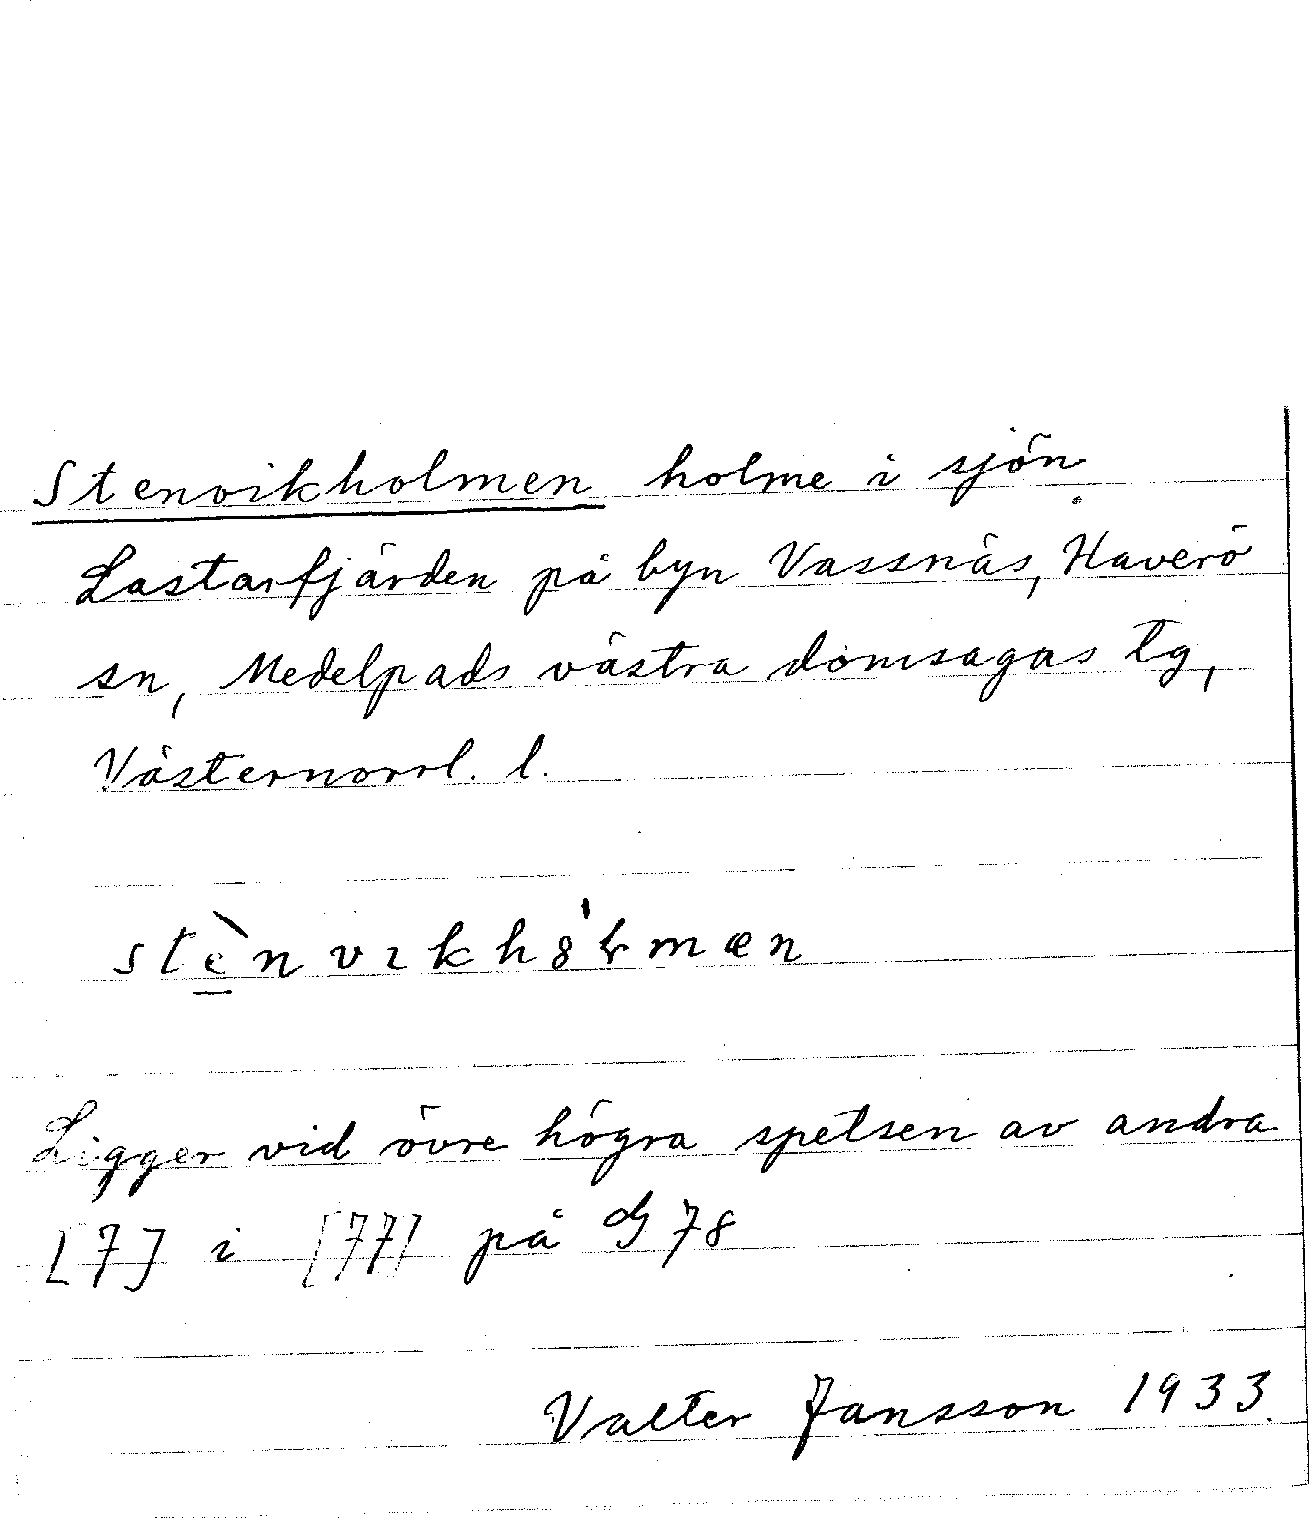 Stenvikholmen holme i sjön
Lastarfjärden på byn Vassnäs, Haverö
sn, Medelpads västra domsagas tg,
Västernorrl. l.
stènvıkh8̍ɽmœn
Ligger vid övre högra spetsen av andra
[7] i [77] på G 78
Valter Jansson 1933.